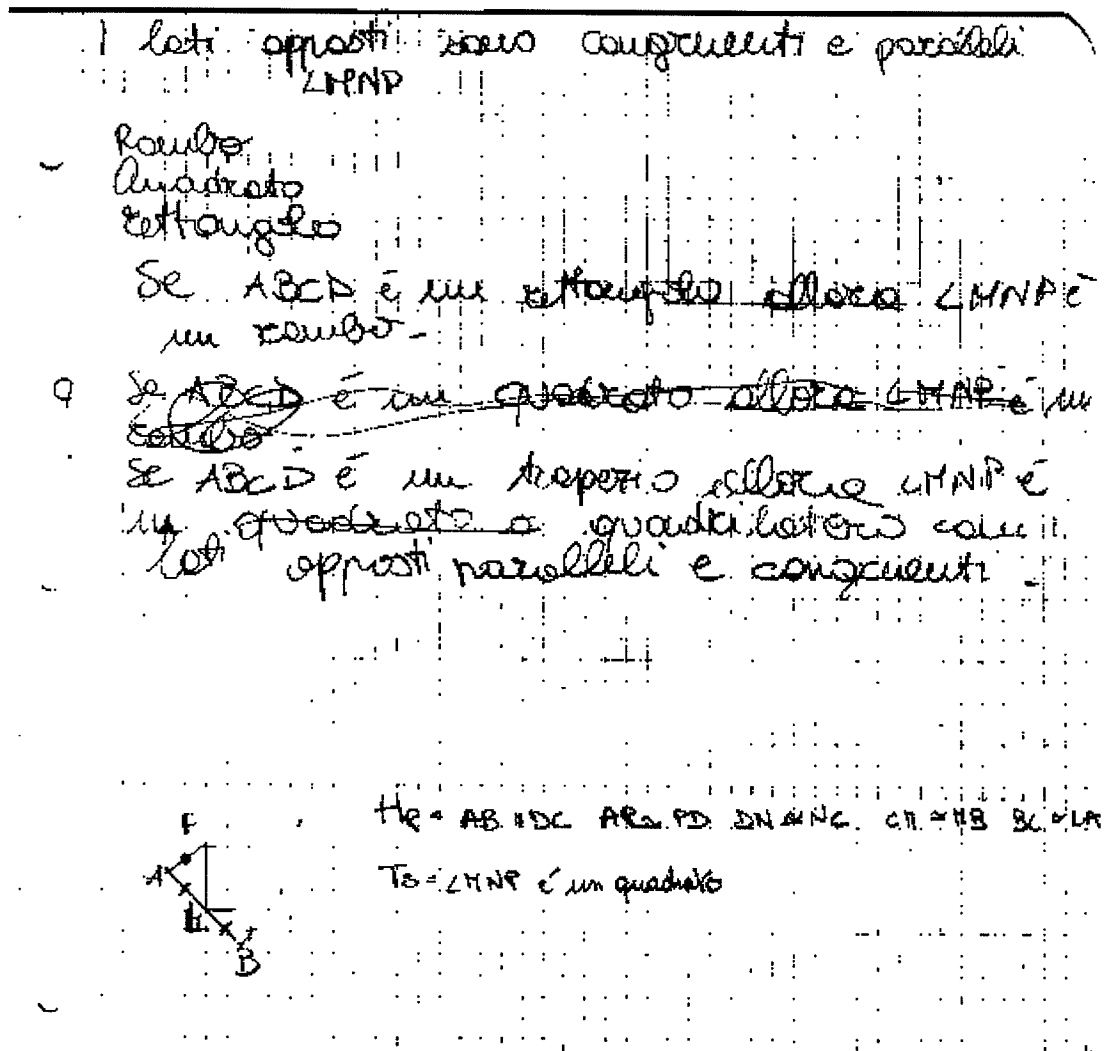 I lati opposti sono congruenti e paralleli
LMNP
Rombo
Quadrato
rettangolo
Se ABCD è un rettangolo allora LMNP è
un rombo -
Se ABCD è un quadrato allora LMNP è un
rombo
Se ABCD è un trapezio allora LMNP è
un quadrato o quadrilatero con i
lati opposti paralleli e congruenti -
Hp = AB // DC AP ≅ PD DN ≅ NC CM ≅ MB
Ts = LMNP è un quadrato
A
B